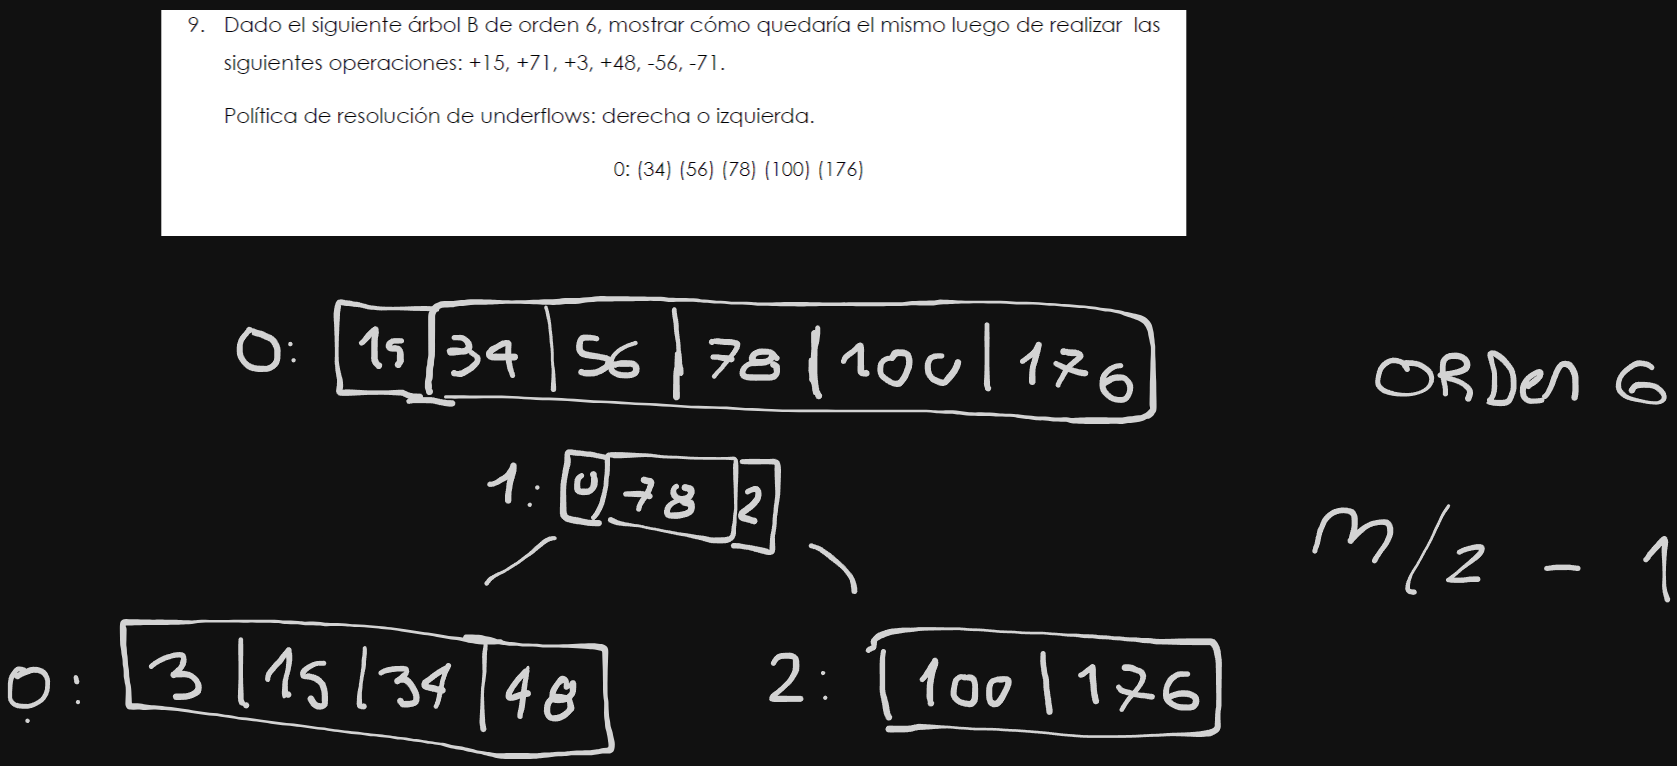 9. Dado el siguiente árbol B de orden 6, mostrar cómo quedaría el mismo luego de realizar las
siguientes operaciones: +15, +71, +3, +48, -56, -71.
Política de resolución de underflows: derecha o izquierda.
0: (34) (56) (78) (100) (176)
0: 15 | 34 | 56 | 78 | 100 | 176
ORDen 6
1: 0 78 2
M/2 - 1
0: 3 | 15 | 34 | 48
2: | 100 | 176